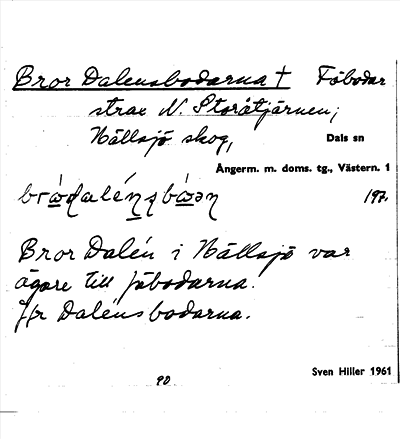 Bror Dalensbodarna † Fäbodar
strax N. Storåtjärnen;
Nällsjö skog, Dals sn
Ångerm. m. doms. tg., Västern. 1
197.
Bror Dalén i Nällsjö var
ägare till fäbodarna.
Jfr Dalénsbodarna.
Sven Hiller 1961
90